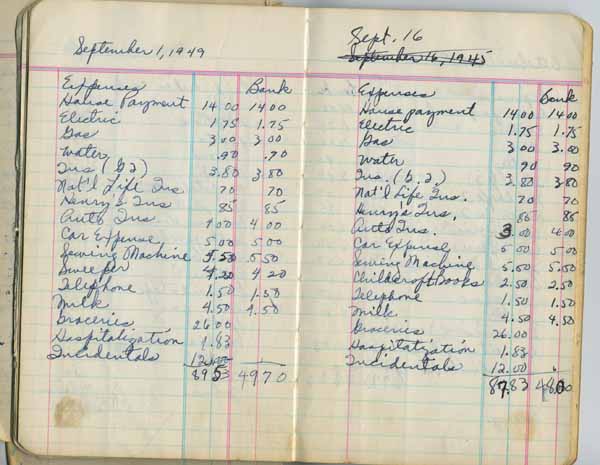 September 1, 1949
Expenses Bank
House Payment 14 00 14 00
Electric 1 75 1.75
Gas 3 00 3 00
Water .90 .70
Ins (G.I) 3.80 3 80
Nat'l Life Ins 70 70
Henry's Ins 85 85
Auto Ins 4 00
Car Expense 5 00 5 00
Sewing Machine 5 50
Sweeper 4.20 4 20
Telephone 1.50 1.50
Milk 4.50 4.50
Groceries 26.00
Hospitalization 1.83
Incidentals 12.00
89 53 49 70
Sept. 16
September 16, 1945
Expenses Bank
House payment 14 00 14 00
Electric 1.75 1.75
Gas 3 00 3 00
Water 90 90
Ins. (G.I.) 3.80 3 80
Nat'l Life Ins. 70 70
Henry's Ins. 85 85
Auto Ins. 3.00
Car Expense 5 00 5 00
Sewing Machine 5.00
Childcraft Books 2.50 2.50
Telephone 1.50 1.50
Milk 4.50 4.50
Groceries 26.00
Hospitalization 1.83
Incidentals 12.00
87.83